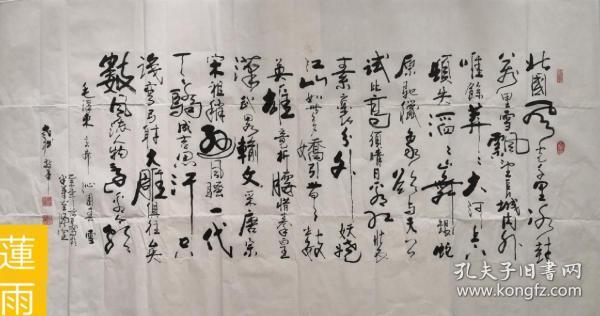 北國風光千里冰封
萬里雪飄望長城內外
唯餘莽莽大河上下
頓失滔滔山舞銀蛇
原馳蠟象欲與天公
試比高須晴日看紅裝
素裹分外妖嬈
江山如此多嬌引無數
英雄競折腰惜秦皇
漢武略輸文采唐宗
宋祖稍遜風騷一代
天驕成吉思汗只
識彎弓射大雕俱往矣
數風流人物還看今朝
毛澤東 沁園春 雪
蓮雨
孔夫子旧书网
www.kongfz.com